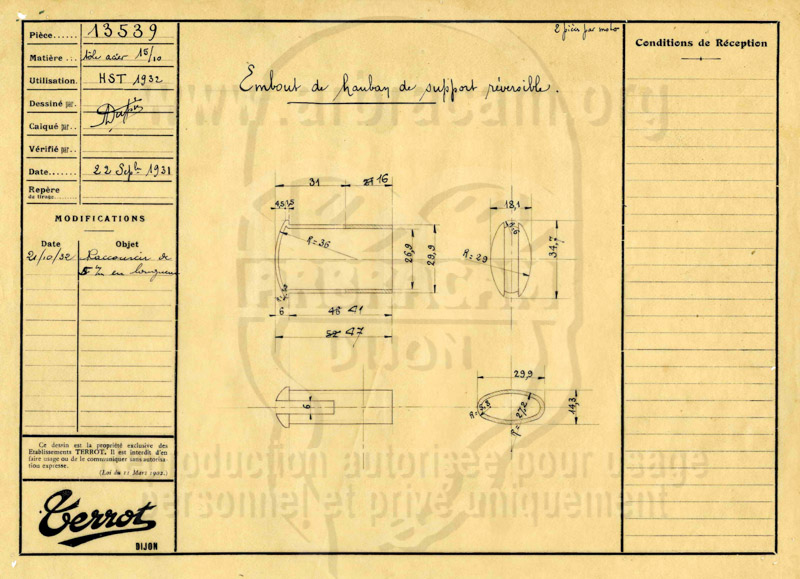 Pièce...... 13539
Matière... tôle acier 15/10
Utilisation. HST 1932
Dessiné par.
Calqué par..
Vérifié par..
Date....... 22 Sept 1931
Repère
de tirage........
MODIFICATIONS
Date Objet
21/10/32 Raccourcir de
5 en longueur
Ce dessin est la propriété exclusive des
Etablissements TERROT. Il est interdit d'en
faire usage ou de le communiquer sans autorisa-
tion expresse.
(Loi du 11 Mars 1902.)
Terrot
DIJON
2 pièces par moto
Embout de hauban de support réversible.
31 16
R=36
26,9
29,9
6 46 41
52 47
18,1
R=29
34,7
6
29,9
R=27,2
14,3
Conditions de Réception
DIJON
Reproduction autorisée pour usage
personnel et privé uniquement